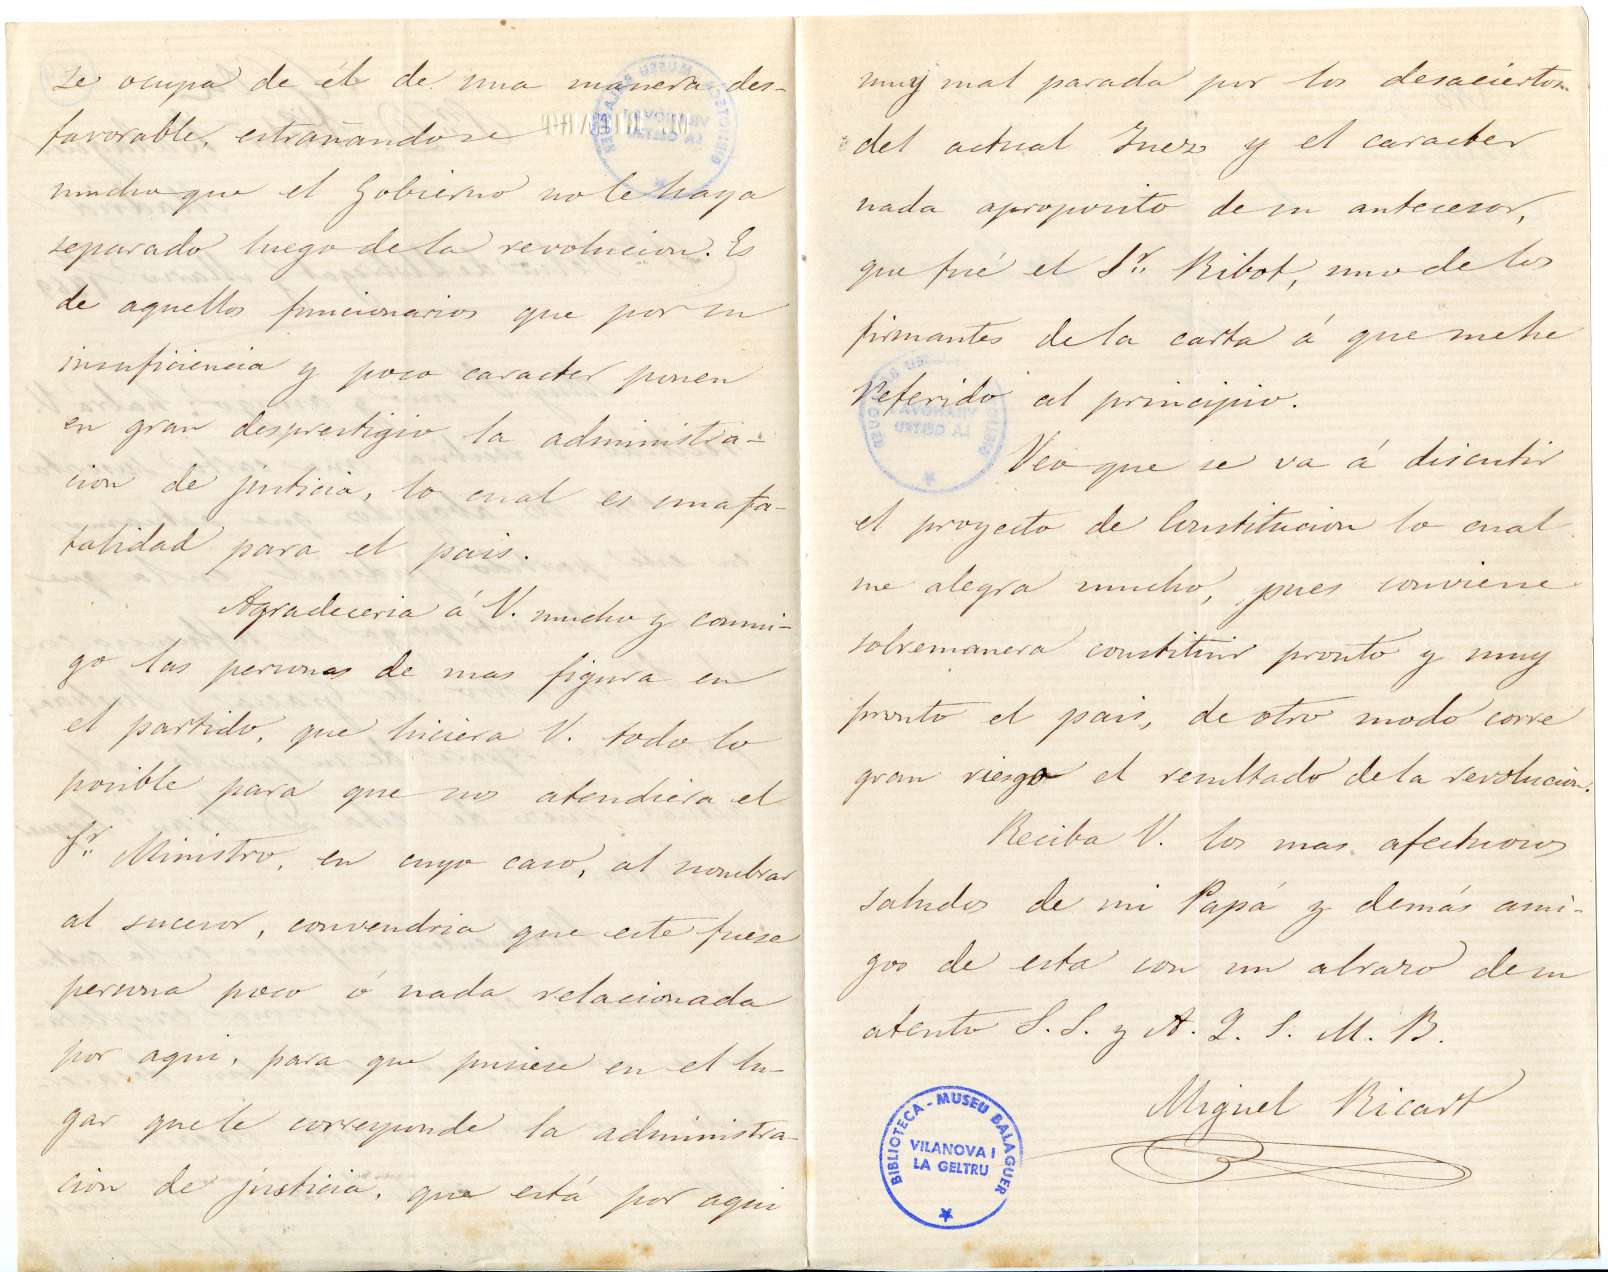 se ocupa de él de una manera des-
favorable, estrañandose
mucho que el Gobierno no le haya
separado luego de la revolucion. Es
de aquellos funcionarios que por su
insuficiencia y poco caracter ponen
en gran desprestigio la administra-
cion de justicia, lo cual es una fa-
talidad para el pais.
Agradeceria á V. mucho y conmi-
go las personas de mas figura en
el partido, que hiciera V. todo lo
posible para que nos atendiera el
Sr. Ministro, en cuyo caso, al nombrar
al sucesor, convendria que este fuese
persona poco ó nada relacionada
por aqui, para que pusiese en el lu-
gar que le corresponde la administra-
cion de justicia, que está por aqui
muy mal parada por los desaciertos
del actual Juez y el caracter
nada apropósito de su antecesor,
que fué el Sr. Ribot, uno de los
firmantes de la carta á que me he
referido al principio.
Veo que se va á discutir
el proyecto de Constitucion lo cual
me alegra mucho, pues conviene
sobremanera constituir pronto y muy
pronto el pais, de otro modo corre
gran riesgo el resultado de la revolucion.
Reciba V. los mas afectuosos
saludos de mi Papá y demás ami-
gos de esta con un abrazo de su
atento S. S. y A. Q. S. M. B.
Miguel Ricart
BIBLIOTECA - MUSEU BALAGUER
VILANOVA I
LA GELTRU